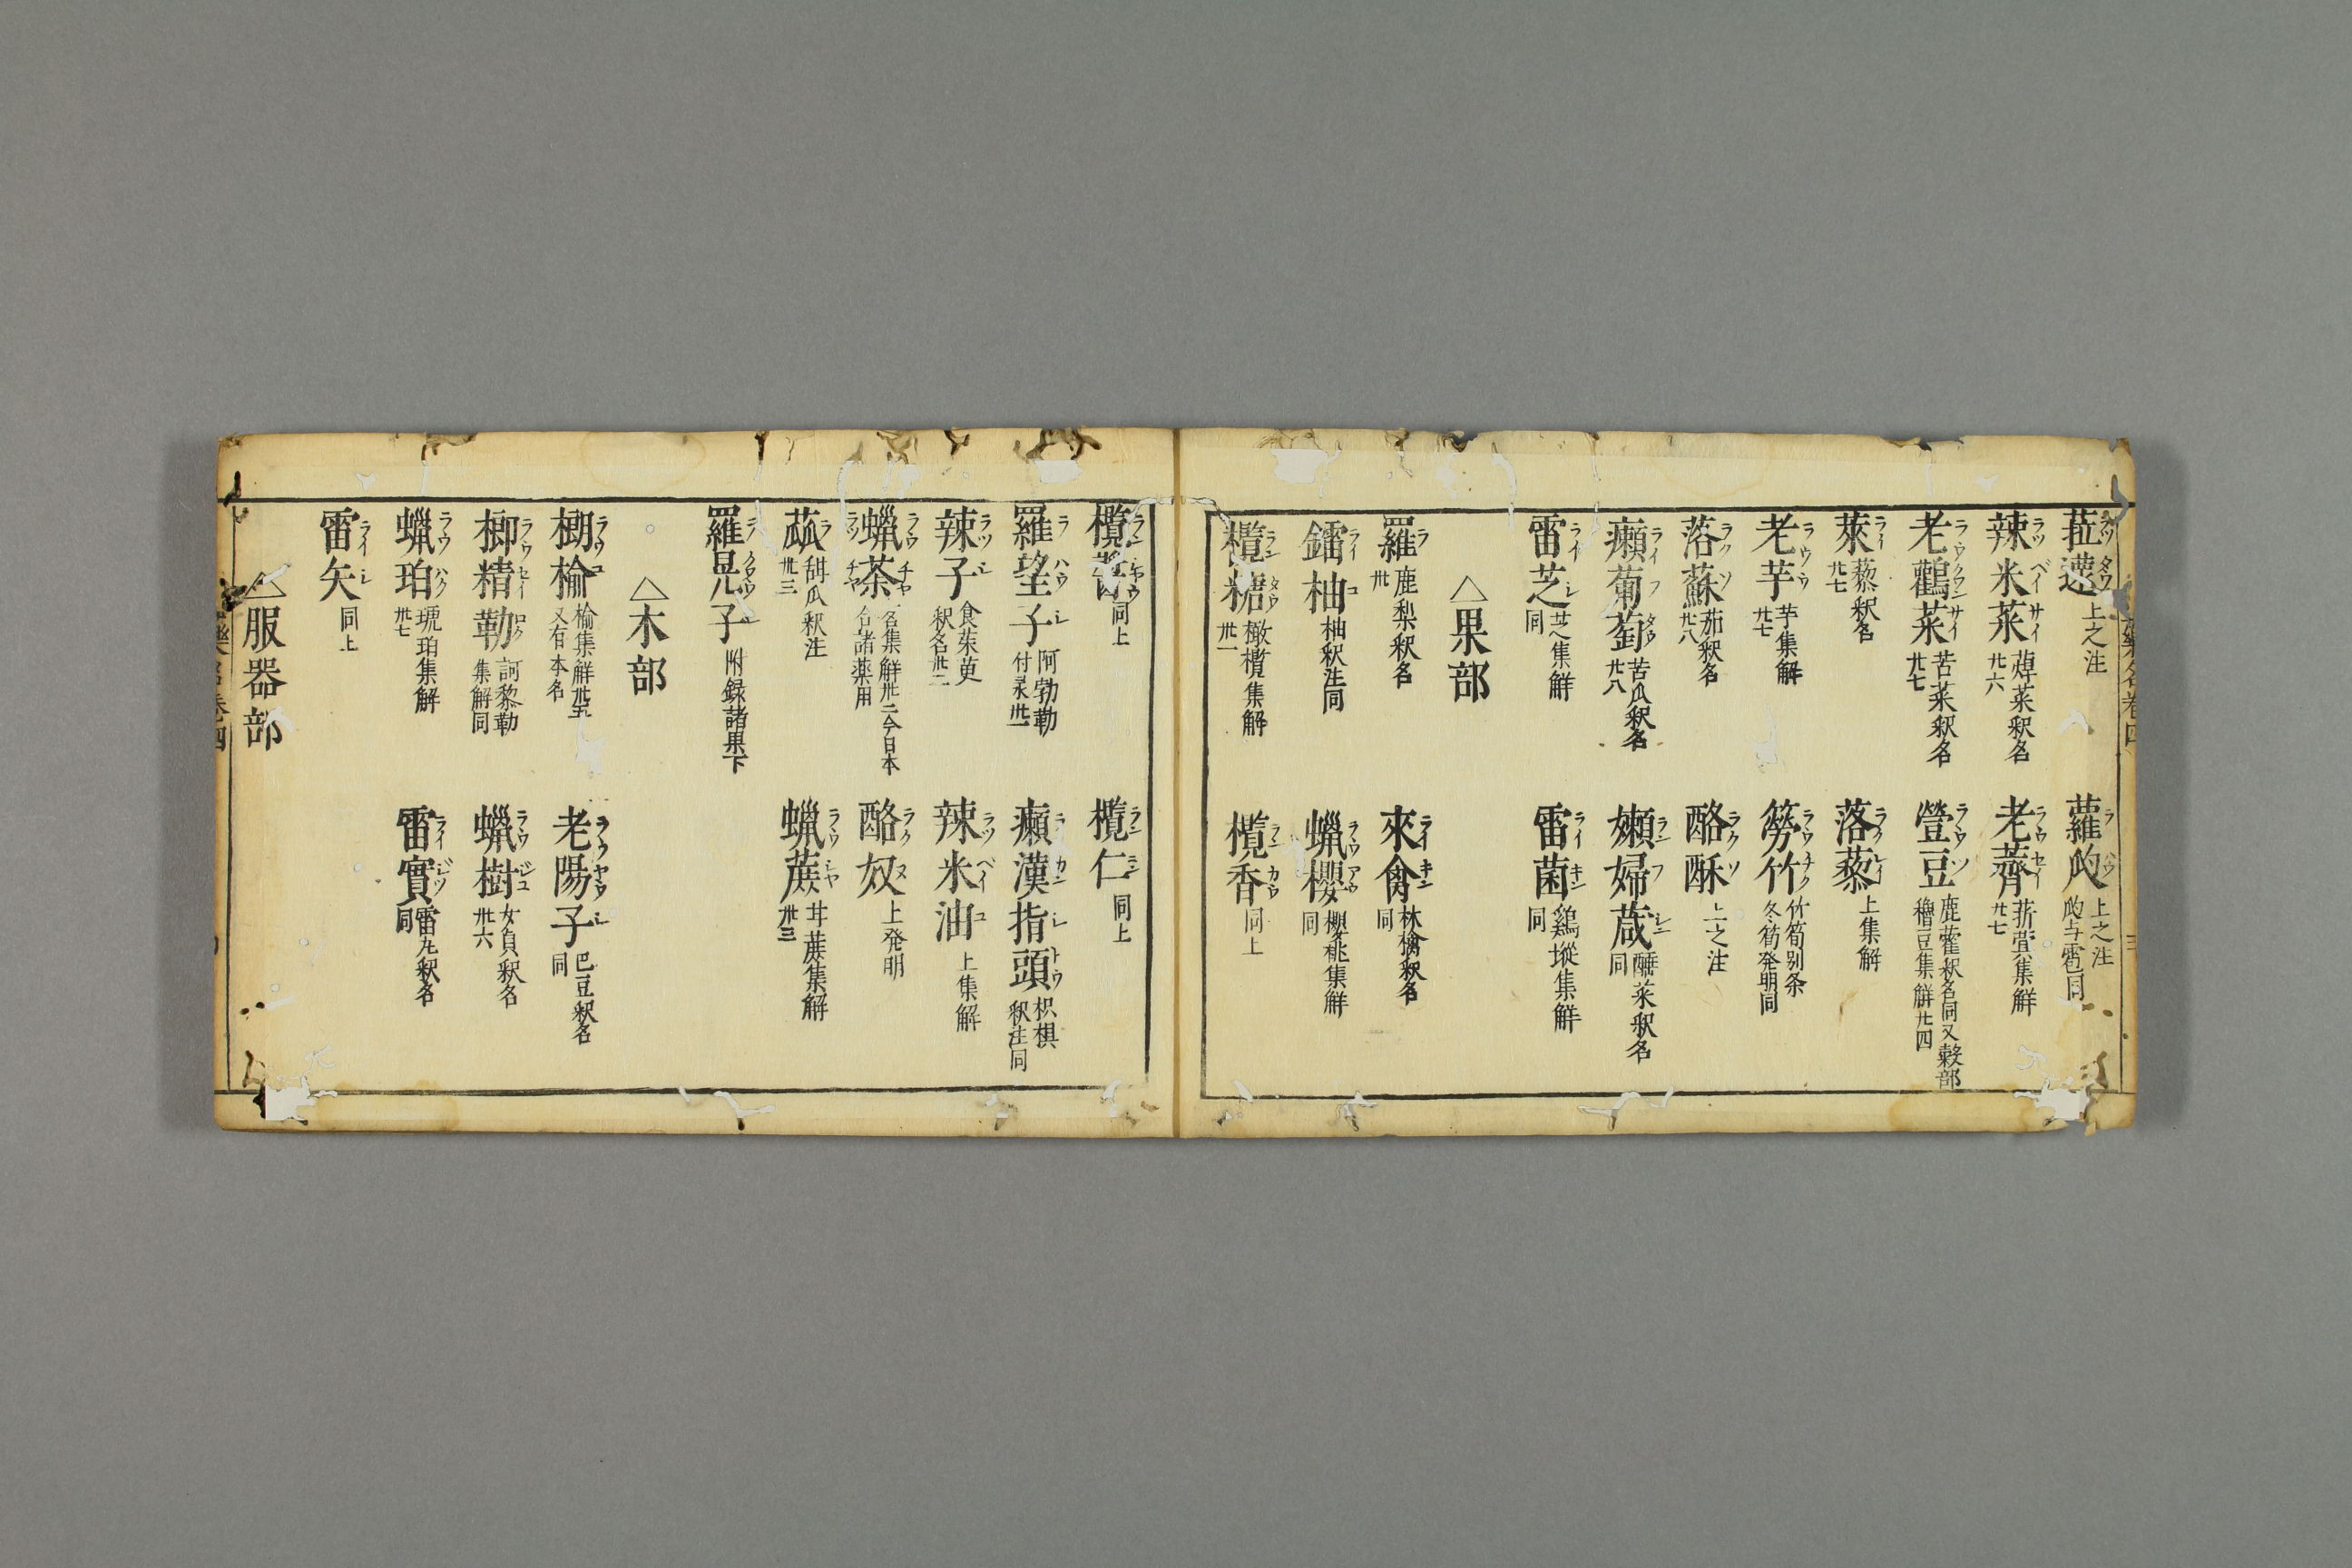 菈䕞 ラツタウ 上之注
蘿瓝 ラハウ 上之注 瓝与雹同
辣米菜 ラツベイサイ 蔊菜釈名 廿六
老薺 ラウセイ 菥蓂集解 廿七
老鸛菜 ラウクワンサイ 苦菜釈名 廿七
䝁豆 ラウツ 鹿藿釈名同又穀部 穭豆集解廿四
萊 ライ 藜釈名 廿七
落藜 ラクレイ 上集解
老芋 ラウウ 芋集解 廿七
簩竹 ラウチク 竹筍別条 冬筍発明同
落蘇 ラクソ 茄釈名 廿八
酪酥 ラクソ 上之注
癩葡萄 ライフタウ 苦瓜釈名 廿八
嬾婦葴 ランフシン 醋菜釈名 同
雷芝 ライシ 芝集解 同
雷菌 ライキン 鶏㙡集解 同
△果部
羅 ラ 鹿梨釈名 卅
來禽 ライキン 林檎釈名 同
鐳柚 ライユ 柚釈注同
蝋櫻 ラウアウ 櫻桃集解 同
欖糖 ランタウ 橄欖集解 卅一
欖香 ランカウ 同上
欖醬 ランシヤウ 同上
欖仁 ランニン 同上
羅望子 ラハウシ 阿勃勒 付录卅一
癩漢指頭 ライカンシトウ 枳椇 釈注同
辣子 ラツシ 食茱萸 釈名卅二
辣米油 ラツベイユ 上集解
蝋茶 ラウチヤ ラツチヤ 名集解卅二今日本 合諸薬用
酪奴 ラクヌ 上発明
蓏 ラ 甜瓜釈注 卅三
蝋蔗 ラウシヤ 甘蔗集解 卅三
羅晃子 ラクワウシ 附録諸果下
△木部
榔楡 ラウユ 楡集解卅五 又有本名
老陽子 ラウヤウシ 巴豆釈名 同
榔精勒 ラウセイロク 訶黎勒 集解同
蝋樹 ラウジユ 女貞釈名 卅六
蝋珀 ラウハク 琥珀集解 卅七
雷實 ライジツ 雷丸釈名 同
雷矢 ライシ 同上
△服器部